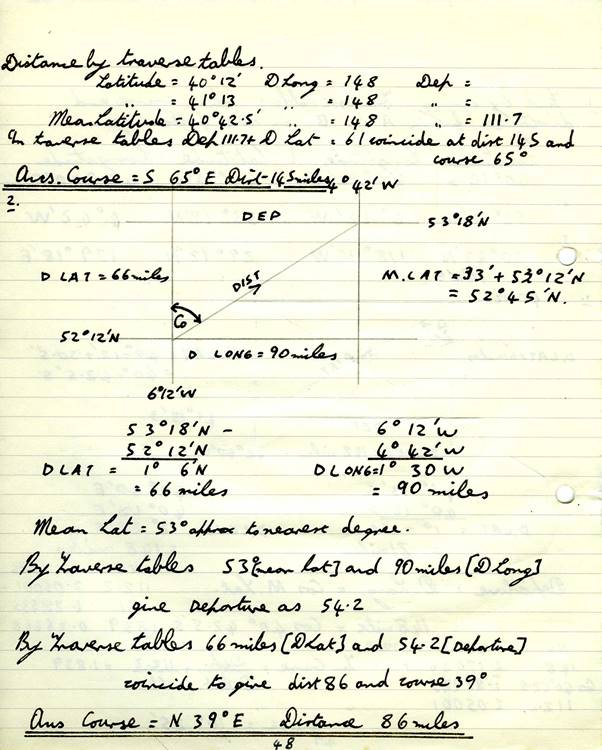 Distance by traverse tables.
Latitude = 40° 12' D Long = 148 Dep =
" = 41° 13 " = 148 " =
Mean Latitude = 40° 42·5' " = 148 " = 111·7
In traverse tables Dep 111·7 + D Lat = 61 coincide at dist 145 and
course 65°
Ans. Course = S 65° E Dist = 145 miles
4° 42' W
2.
DEP
53° 18' N
D LAT = 66 miles
DIST
M. LAT = 33' + 52° 12' N
= 52° 45' N.
Co
52° 12' N
D LONG = 90 miles
6° 12' W
53° 18' N - 6° 12' W
52° 12' N 4° 42' W
D LAT = 1° 6' N D LONG = 1° 30 W
= 66 miles = 90 miles
Mean Lat = 53° approx to nearest degree.
By Traverse tables 53° [mean lat] and 90 miles [D Long]
give Departure as 54·2
By Traverse tables 66 miles [D Lat] and 54·2 [Departure]
coincide to give dist 86 and course 39°
Ans Course = N 39° E Distance 86 miles
48